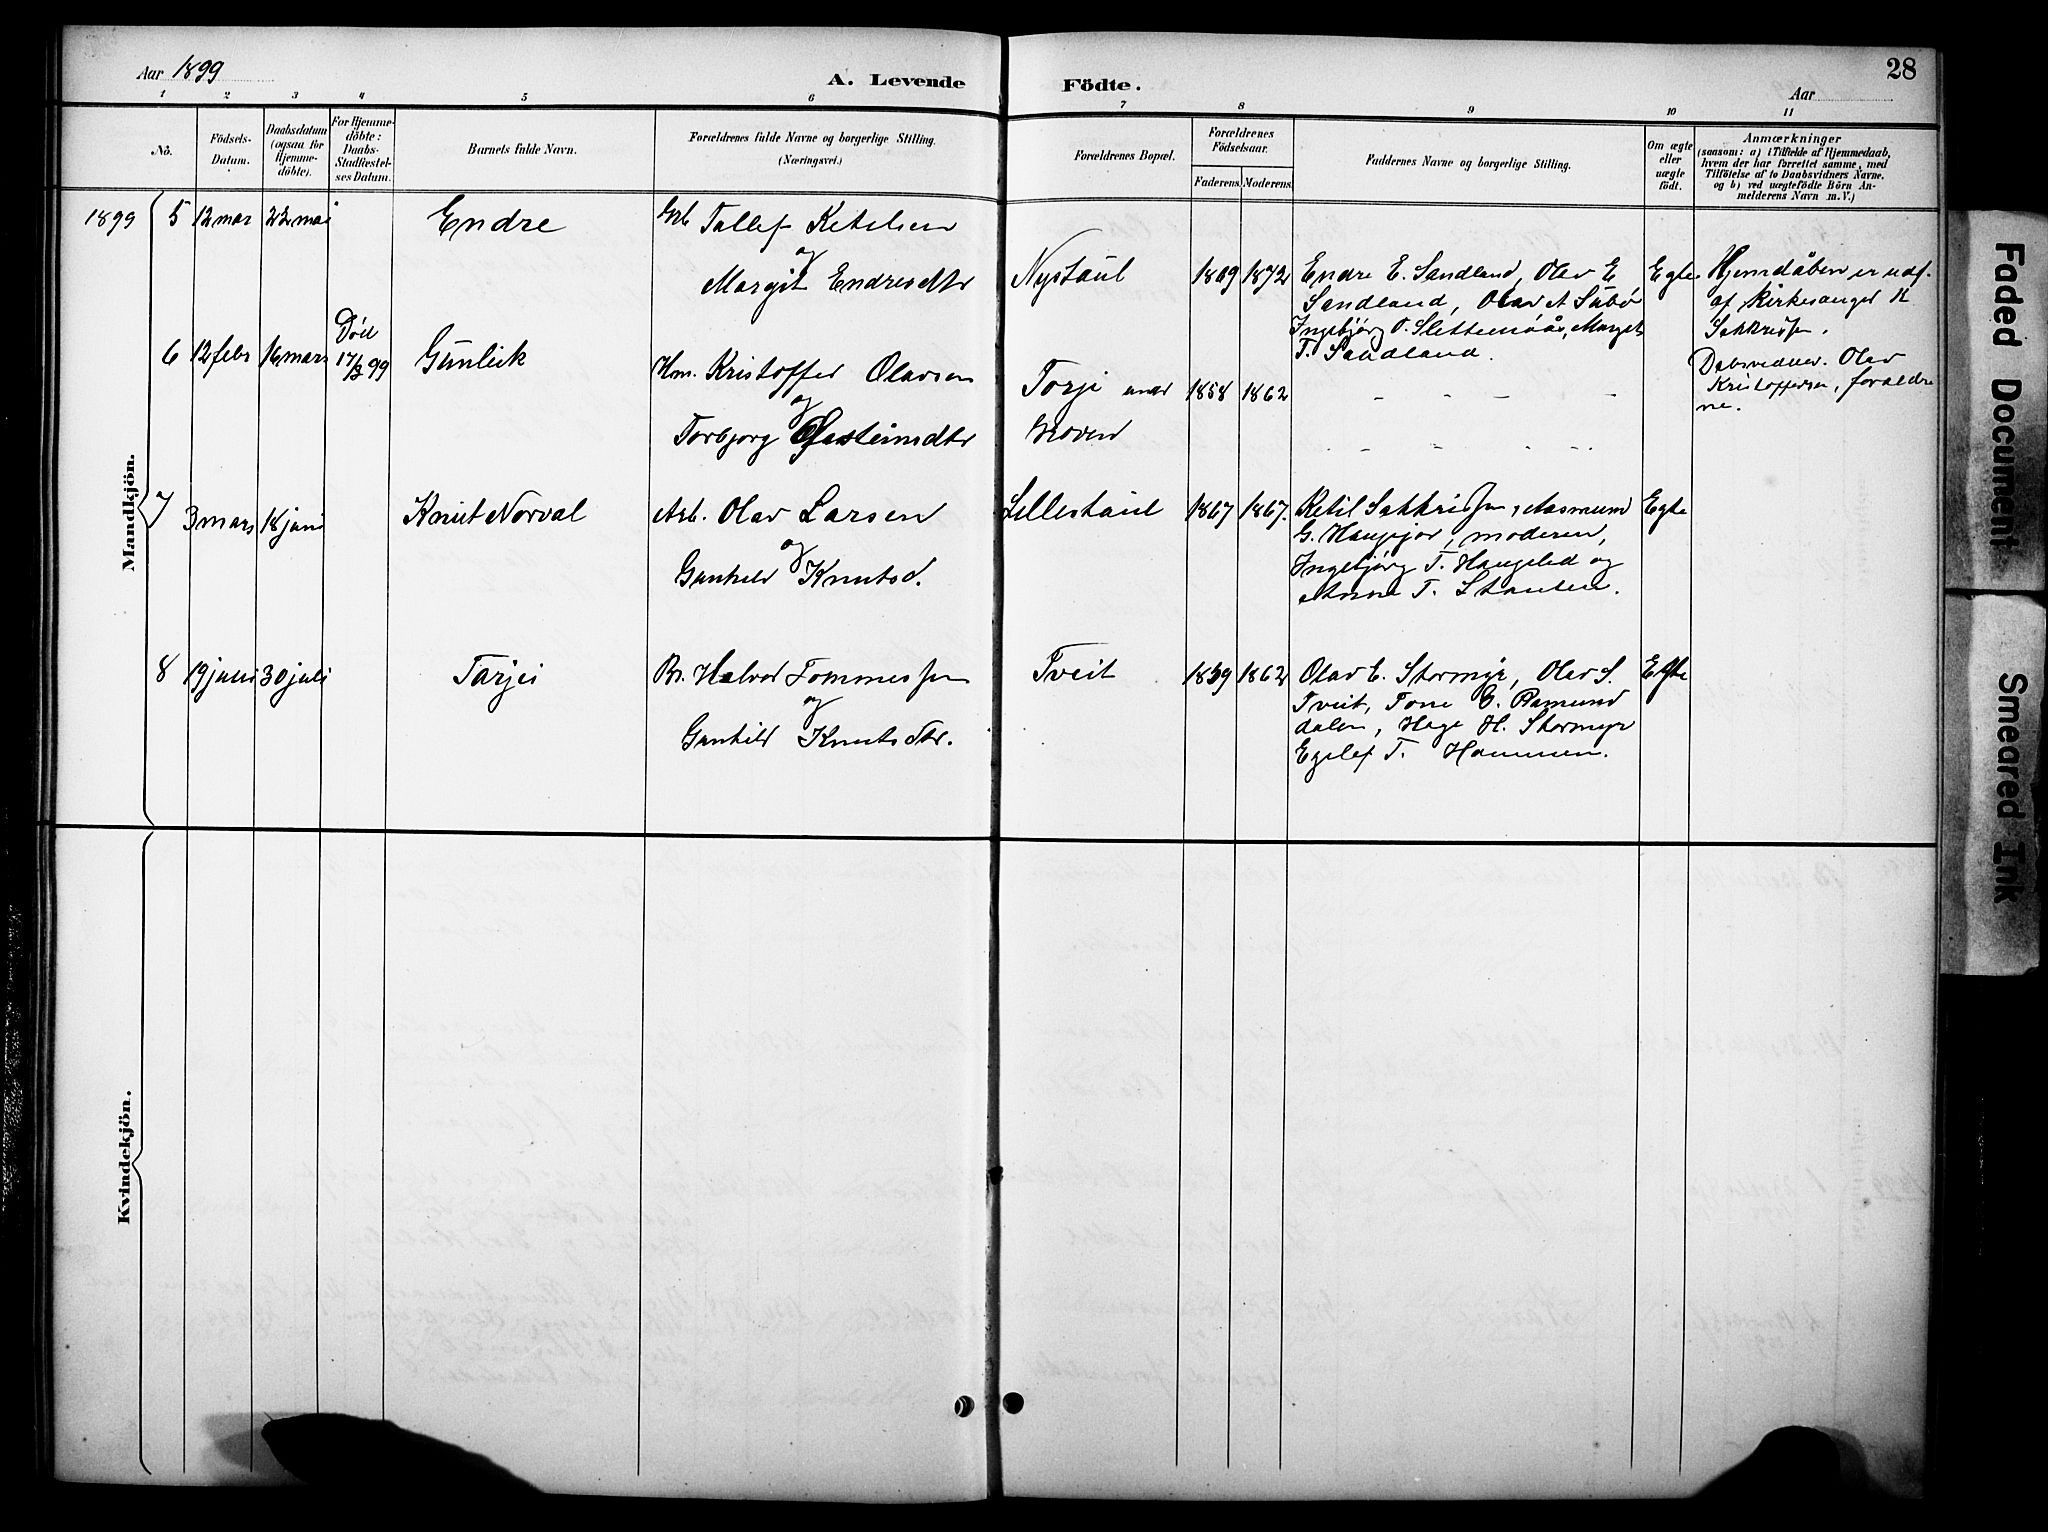 Aar 1899
A. Levende Födte.
28
Aar
1 2 3 4 5 6 7 8 9 10 11
No.
Födsels-Datum.
Daabsdatum (ogsaa for Hjemme-döbte).
For Hjemme-döbte: Daabs-Stadfæstel-ses Datum.
Barnets fulde Navn.
Forældrenes fulde Navne og borgerlige Stilling.
(Næringsvei.)
Forældrenes Bopæl.
Forældrenes Födselsaar.
Faderens. Moderens.
Faddernes Navne og borgerlige Stilling.
Om ægte eller uægte födt.
Anmærkninger
(saasom: a) i Tilfælde af Hjemmedaab,
hvem der har forrettet samme, med
Tilföielse af to Daabsvidners Navne,
og b) ved uægtefödte Börn An-
melderens Navn m. V.)
Mandkjön.
1899 5 12 mar 22 mai Endre Grb Tallef Ketilsen
og
Margit Endresdtr
Nystaul 1869 1872
Endre E. Sandland, Olav E
Sandland, Olav A Subø
Ingebjørg O. Slettemoås, Margit
T. Sandland.
Egte
Hjemdåben er udf.
af kirkesanger K
Sakkrissen.
6 12 febr 16 mars Död 17/3 99 Gunleik Hm. Kristoffer Olavsen
og
Torbjørg Øisteinsdtr
Torje under
Moven
1858 1862
Dabsvidner. Olav
Kristoffersen, forældre
ne.
7 3 mars 18 juni Knut Norval Arb. Olav Larsen
og
Gunhild Knutsd.
Lillestaul 1867 1867.
Ketil Sakkrissen, Aasmund
G. Haugejor, moderen,
Ingebjørg T. Haugslid og
Anne T. Stauten.
Egte
8 19 juni 30 juli Tarjei Br. Halvor Tommessen
og
Gunhild Knutsdtr.
Tveit 1859 1862
Olav E. Stormyr, Olav S.
Tveit, Tone G. Ramund
dalen, Hage H. Stormyr
Egelef T. Hommen.
Egte
Kvindekjön.
Faded Document
Smeared Ink